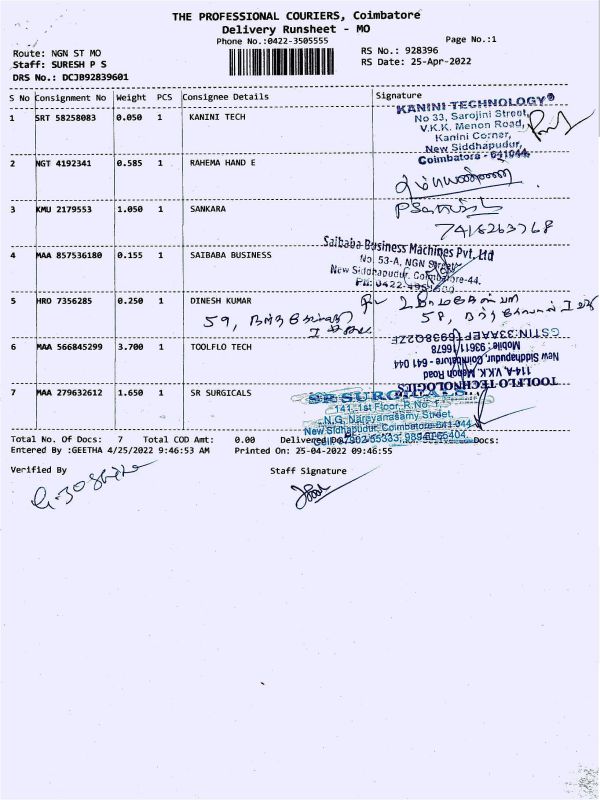 THE PROFESSIONAL COURIERS, Coimbatore
Delivery Runsheet - MO
Phone No.:0422-3505555
Page No.:1
Route: NGN ST MO
RS No.: 928396
Staff: SURESH P S
RS Date: 25-Apr-2022
DRS No.: DCJB92839601
S No Consignment No Weight PCS Consignee Details Signature
1 SRT 58258083 0.050 1 KANINI TECH
KANINI TECHNOLOGY®
No 33, Sarojini Street,
V.K.K. Menon Road,
Kanini Corner,
New Siddhapudur,
Coimbatore - 641044.
2 NGT 4192341 0.585 1 RAHEMA HAND E
3 KMU 2179553 1.050 1 SANKARA
7418263768
4 MAA 857536180 0.155 1 SAIBABA BUSINESS
Saibaba Business Machines Pvt. Ltd
No. 53-A, NGN Street
New Siddhapudur, Coimbatore-44.
5 HRO 7356285 0.250 1 DINESH KUMAR
59,
58,
6 MAA 566845299 3.700 1 TOOLFLO TECH
TOOLFLO TECHNOLOGIES
114-A, V.K.K. Menon Road
New Siddhapudur, Coimbatore - 641 044
Mobile : 93611 16678
7 MAA 279632612 1.650 1 SR SURGICALS
SR SURGICALS
141, 1st Floor, R.No. 1,
N.G. Narayanasamy Street,
New Sidhapudur, Coimbatore-641 044
Total No. Of Docs: 7 Total COD Amt: 0.00 Delivered Docs:
Entered By :GEETHA 4/25/2022 9:46:53 AM Printed On: 25-04-2022 09:46:55
Verified By Staff Signature